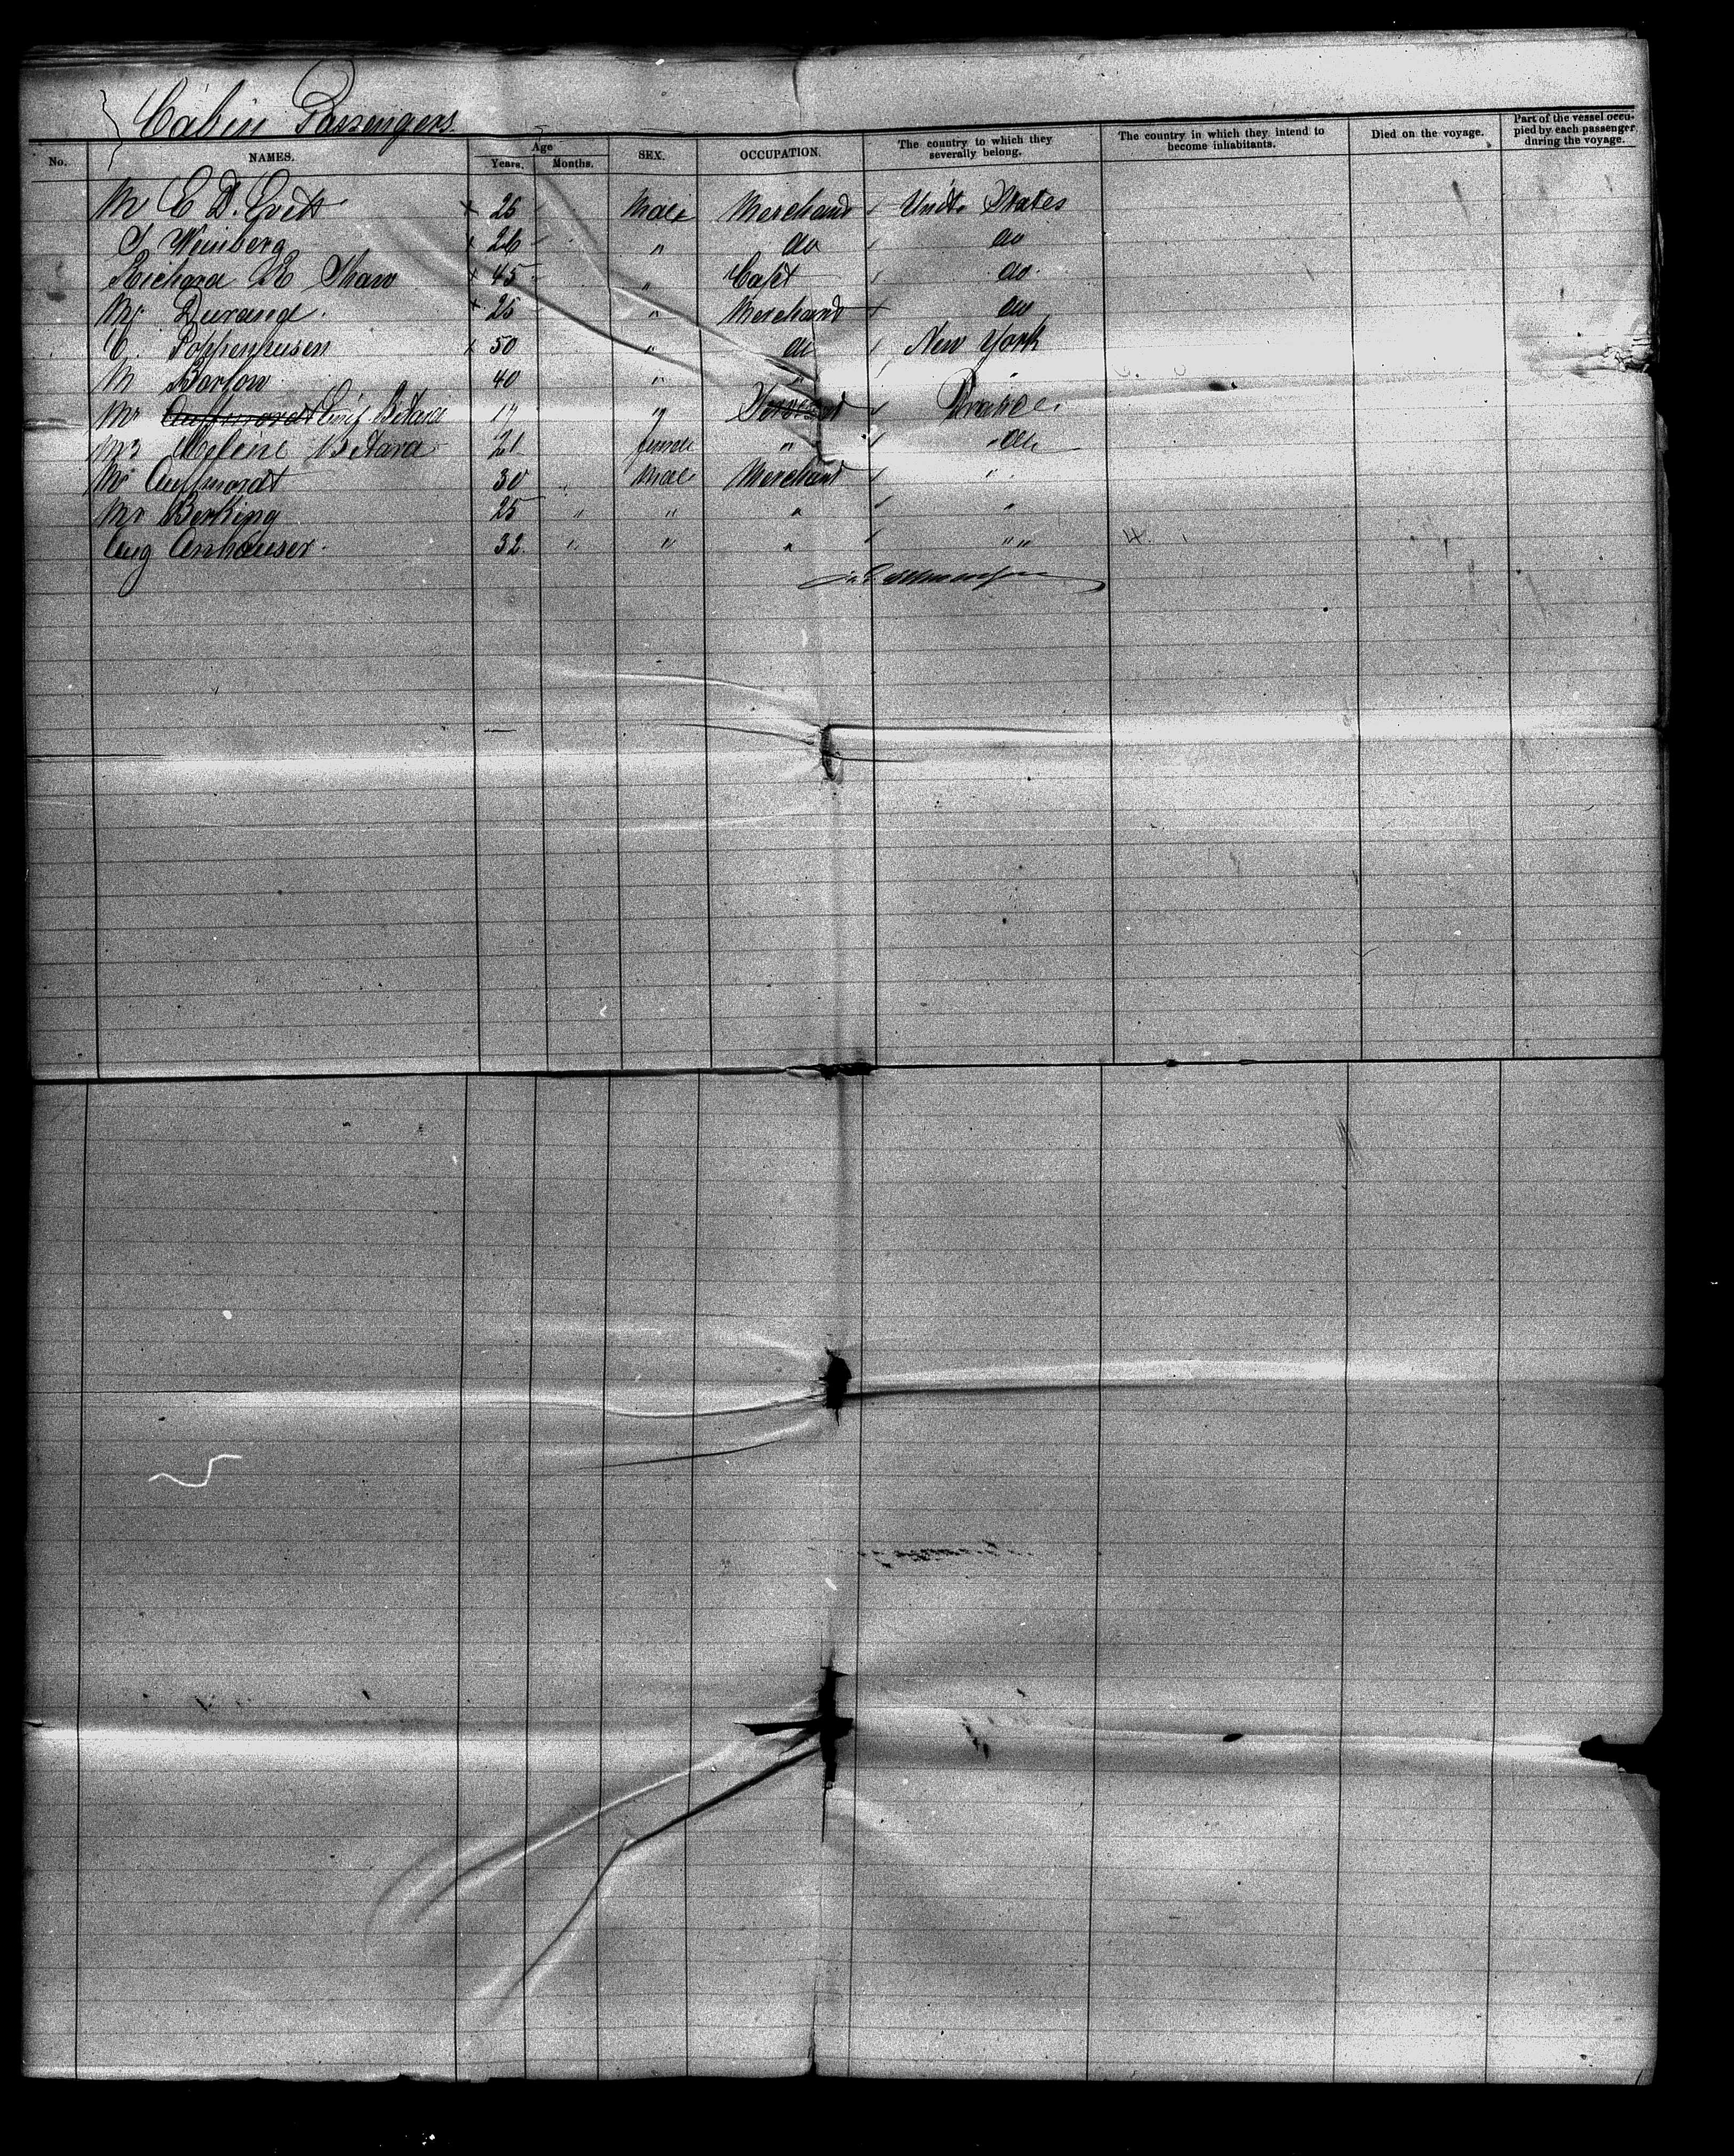 Cabin Passengers
No. NAMES. Age Years. Months. SEX. OCCUPATION. The country to which they severally belong. The country in which they intend to become inhabitants. Died on the voyage. Part of the vessel occupied by each passenger during the voyage.
Mr E D. 26 Male Merchand Unit. States
Weinberg 26 " do do
Richard R Shaw 45 " Capt do.
Mr. Durand. 25 " Merchand do
C. Poppenhusen 50 " do New York
M Barlow 40 " "
Mr 17 "
21 female " do
Mr Auffmordt 30 Male Merchand "
Mr Berking 25 " " " "
Aug 32 " " " " "